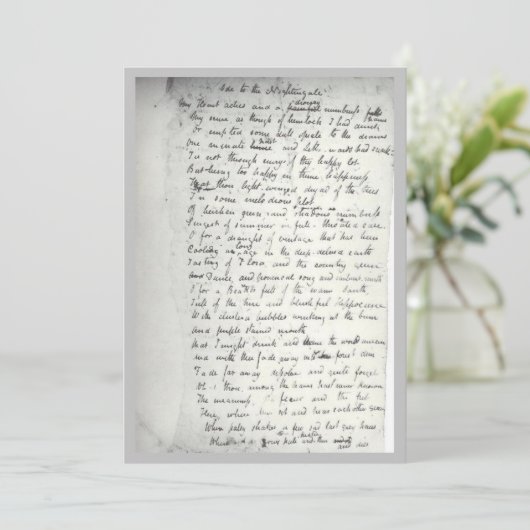 Ode to the Nightingale
drowsy
My Heart aches and a painful numbness falls
My sense as though of hemlock I had drunk
Or emptied some dull opiate to the drains
One minute and Lethe-wards had sunk
Tis not through envy of thy happy lot
But being too happy in thine happiness
That thou light winged dryad of the trees
In some melodious plot
Of beechen green and shadows numberless
Singest of summer in full-throated ease.
O for a draught of vintage that has been
long
Cooling an age in the deep-delved earth
Tasting of Flora and the country green
Dance, and provencal song and sunburnt mirth
O for a Beaker full of the warm South,
Full of the true and blushful Hippocrene
With cluster'd bubbles winking at the brim
And purple stained mouth
That I might drink and leave the world unseen
And with thee fade away into forest dim
Fade far away dissolve and quite forget
What thou among the leaves hast never known
The weariness, the fever and the fret
Here, where men sit and hear each other groan
Where palsy shakes a few sad last grey hairs
Where youth grows pale and thin and dies